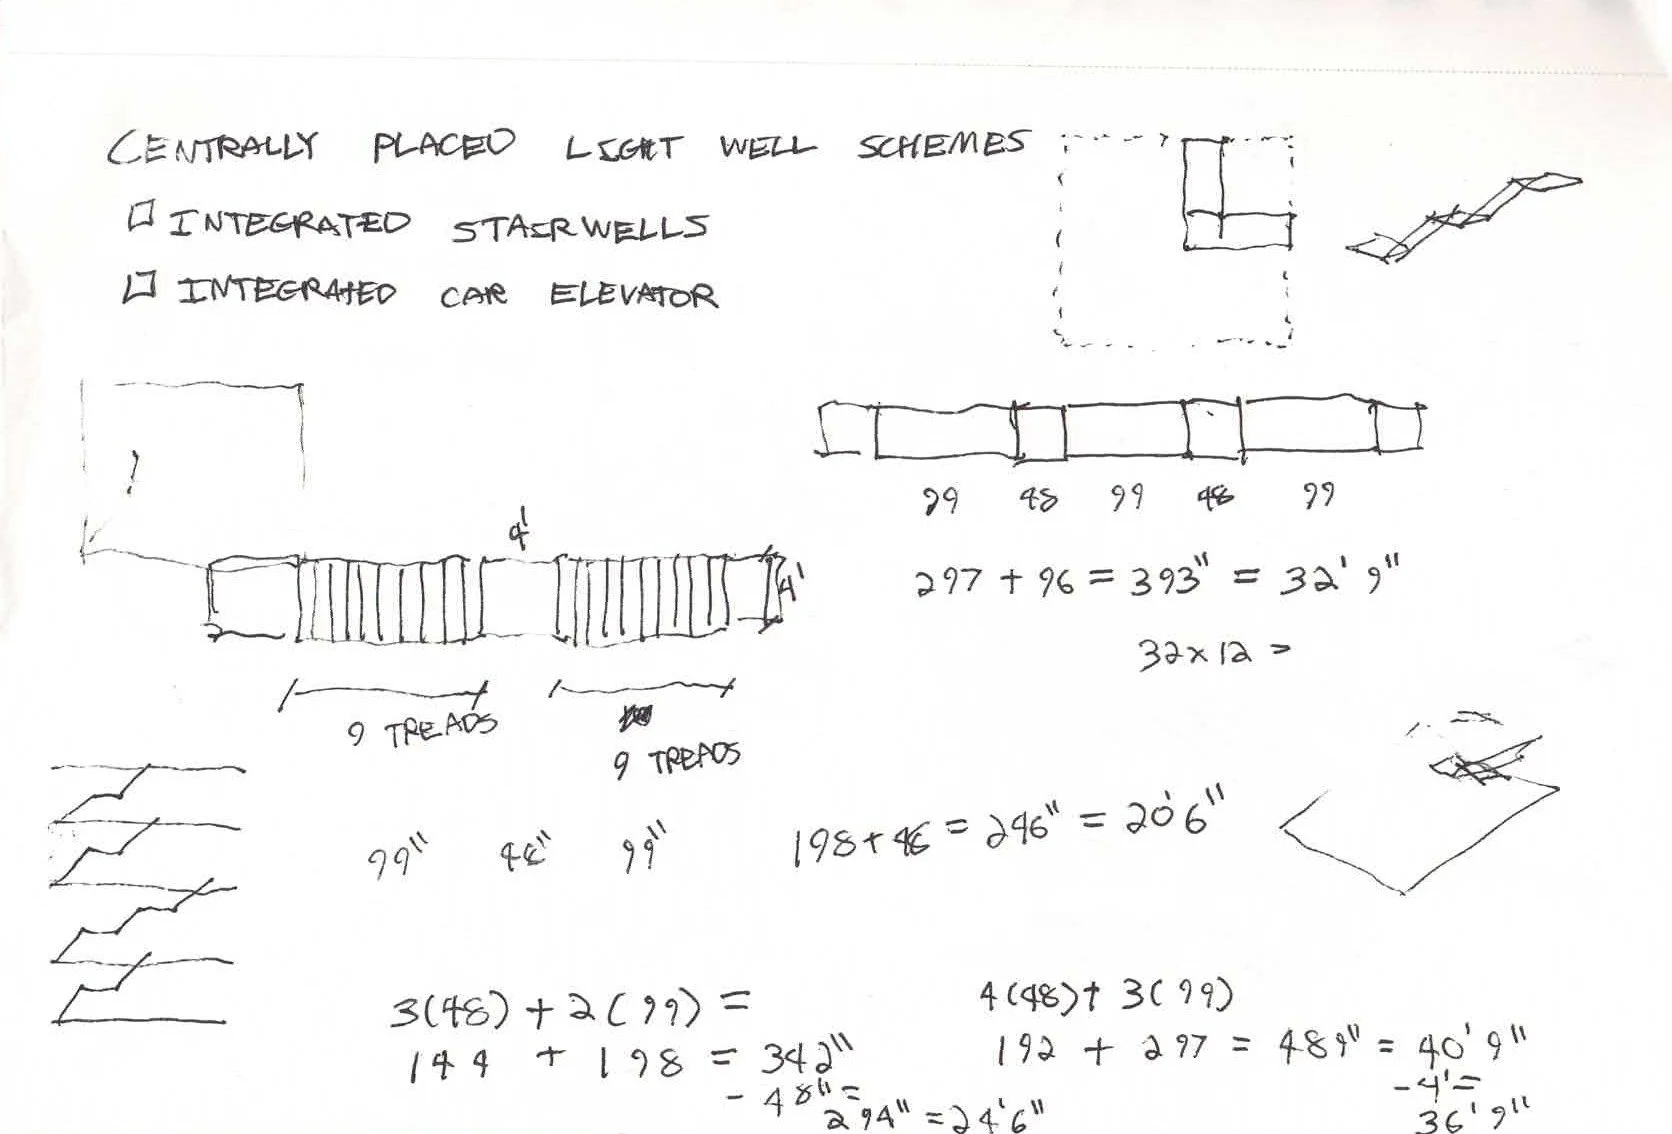 CENTRALLY PLACED LIGHT WELL SCHEMES
INTEGRATED STAIRWELLS
INTEGRATED CAR ELEVATOR
99 48 99 48 99
297 + 96 = 393" = 32' 9"
32 x 12 =
4'
4'
9 TREADS
9 TREADS
99" 48" 99"
198 + 48 = 246" = 20'6"
3(48) + 2(99) =
144 + 198 = 342"
- 48" =
294" = 24'6"
4(48) + 3(99)
192 + 297 = 489" = 40'9"
-4' =
36'9"